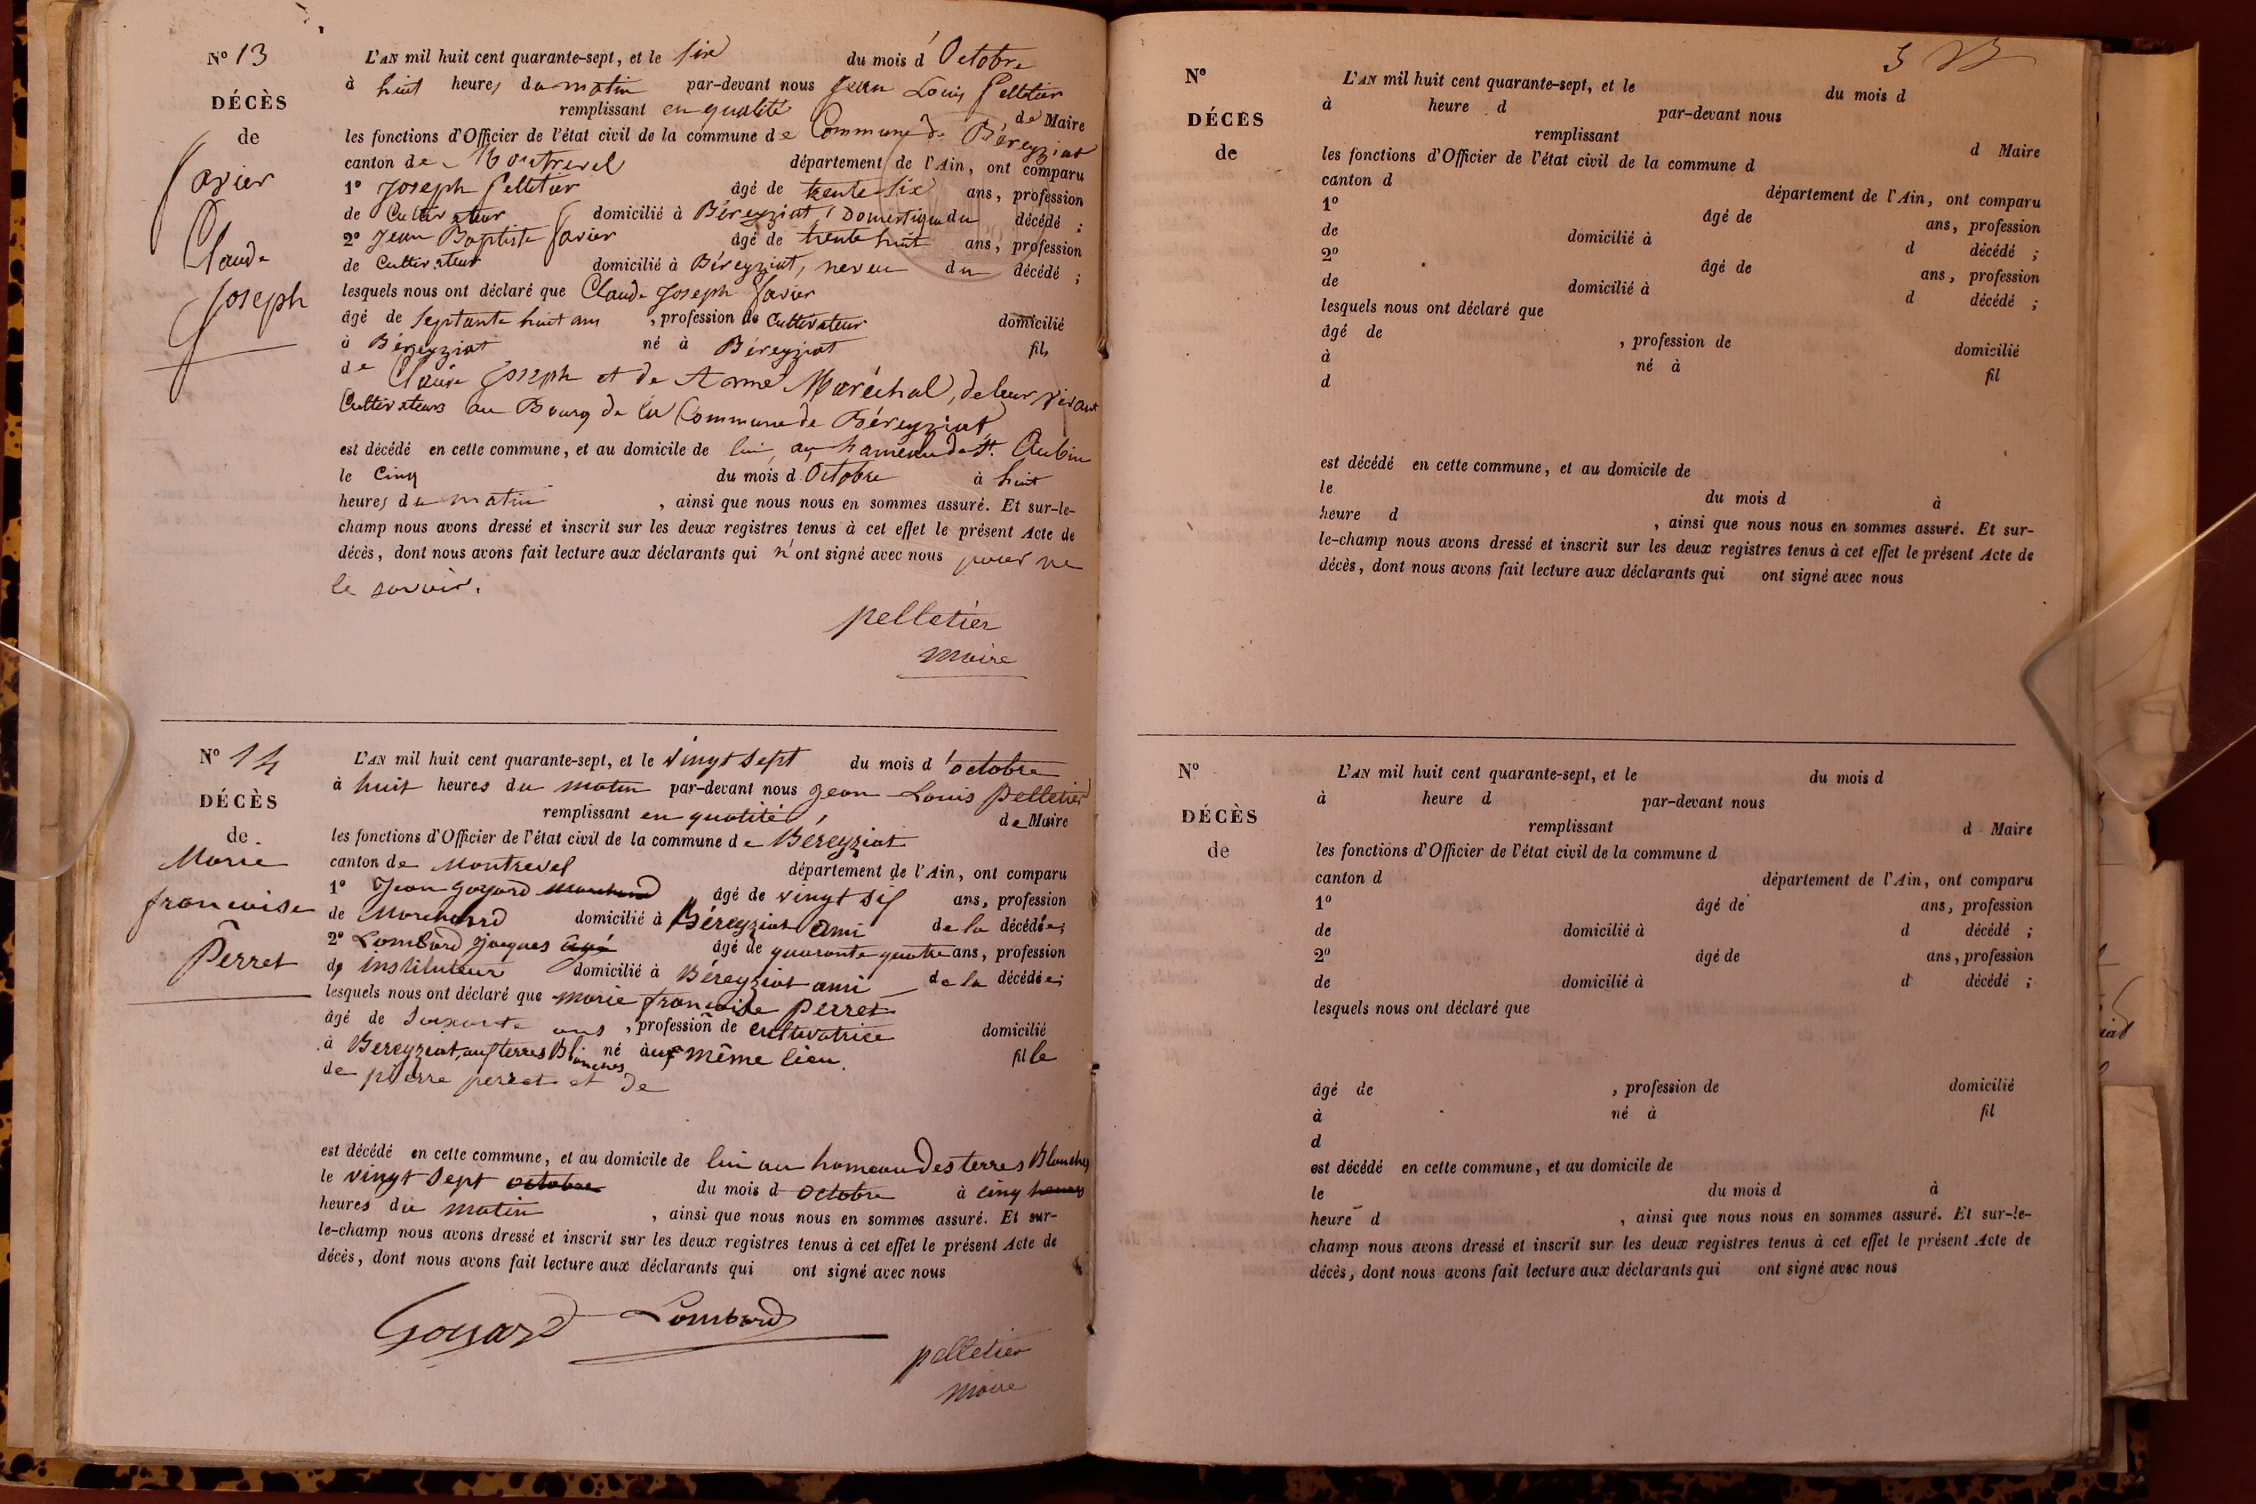 N° 13
DÉCÈS
de
Favier
Claude
Joseph
L'AN mil huit cent quarante-sept, et le six du mois d'Octobre
à huit heures du matin par-devant nous Jean Louis Pelletier
remplissant en qualité de Maire
les fonctions d'Officier de l'état civil de la commune de Commune de Béreyziat
canton de Montrevel département de l'Ain, ont comparu
1° Joseph Pelletier âgé de trente six ans, profession
de Cultivateur domicilié à Béreyziat, Domestique du décédé ;
2° Jean Baptiste Favier âgé de trente huit ans, profession
de Cultivateur domicilié à Béreyziat, neveu du décédé ;
lesquels nous ont déclaré que Claude Joseph Favier
âgé de septante huit ans , profession de Cultivateur domicilié
à Béreyziat né à Béreyziat fils
de Claude Joseph et de Anne Maréchal, de leur vivant
Cultivateurs au Bourg de la Commune de Béreyziat
est décédé en cette commune, et au domicile de lui, au hameau de St. Aubin
le Cinq du mois d Octobre à huit
heures du matin , ainsi que nous nous en sommes assuré. Et sur-le-
champ nous avons dressé et inscrit sur les deux registres tenus à cet effet le présent Acte de
décès, dont nous avons fait lecture aux déclarants qui n'ont signé avec nous pour ne
le savoir.
pelletier
maire
N° 14
DÉCÈS
de
Marie
francoise
Perret
L'AN mil huit cent quarante-sept, et le vingt sept du mois d'octobre
à huit heures du matin par-devant nous jean Louis pelletier
remplissant en qualité de Maire
les fonctions d'Officier de l'état civil de la commune de Béreyziat
canton de Montrevel département de l'Ain, ont comparu
1° Jean goyard marchand âgé de vingt six ans, profession
de Marchand domicilié à Béreyziat ami de la décédée ;
2° Lombard jacques âgé âgé de quarante quatre ans, profession
de instituteur domicilié à Béreyziat ami de la décédée ;
lesquels nous ont déclaré que marie francoise perret
âgé de soixante ans , profession de cultivatrice domicilié
à Bereyziat, aux terres Blanches né aux même lieu. fille
de pierre perret et de
est décédé en cette commune, et au domicile de lui au hameau des terres Blanches
le vingt sept octobre du mois d octobre à cinq heures
heures du matin , ainsi que nous nous en sommes assuré. Et sur-
le-champ nous avons dressé et inscrit sur les deux registres tenus à cet effet le présent Acte de
décès, dont nous avons fait lecture aux déclarants qui ont signé avec nous
Goyard Lombard
pelletier
maire
N°
DÉCÈS
de
L'AN mil huit cent quarante-sept, et le du mois d
à heure d par-devant nous
remplissant d Maire
les fonctions d'Officier de l'état civil de la commune d
canton d département de l'Ain, ont comparu
1° âgé de ans, profession
de domicilié à d décédé ;
2° âgé de ans, profession
de domicilié à d décédé ;
lesquels nous ont déclaré que
âgé de , profession de domicilié
à né à fil
d
est décédé en cette commune, et au domicile de
le du mois d à
heure d , ainsi que nous nous en sommes assuré. Et sur-
le-champ nous avons dressé et inscrit sur les deux registres tenus à cet effet le présent Acte de
décès, dont nous avons fait lecture aux déclarants qui ont signé avec nous
N°
DÉCÈS
de
L'AN mil huit cent quarante-sept, et le du mois d
à heure d par-devant nous
remplissant d Maire
les fonctions d'Officier de l'état civil de la commune d
canton d département de l'Ain, ont comparu
1° âgé de ans, profession
de domicilié à d décédé ;
2° âgé de ans, profession
de domicilié à d décédé ;
lesquels nous ont déclaré que
âgé de , profession de domicilié
à né à fil
d
est décédé en cette commune, et au domicile de
le du mois d à
heure d , ainsi que nous nous en sommes assuré. Et sur-le-
champ nous avons dressé et inscrit sur les deux registres tenus à cet effet le présent Acte de
décès, dont nous avons fait lecture aux déclarants qui ont signé avec nous